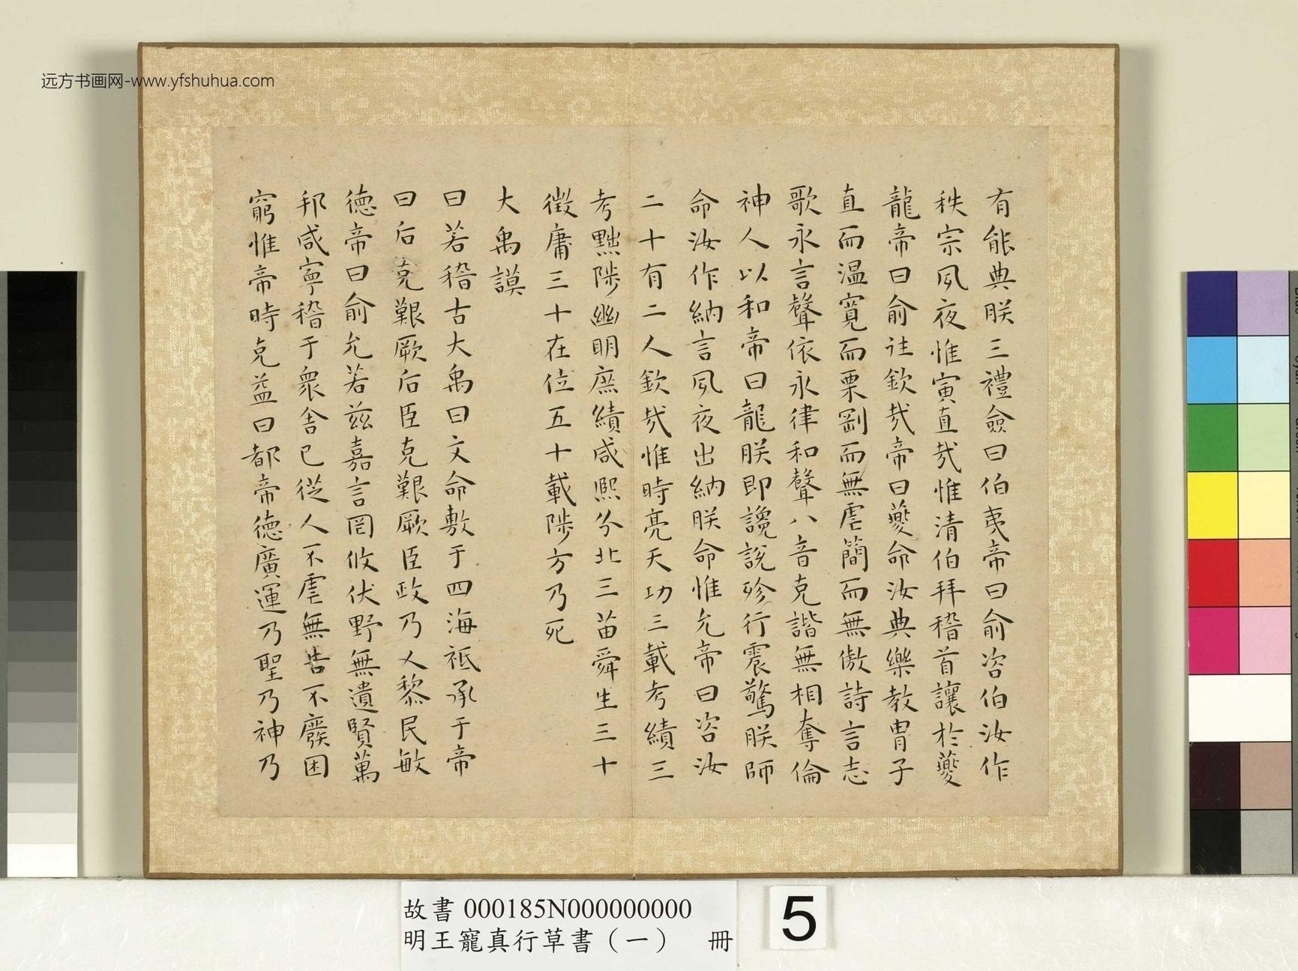 远方书画网-www.yfshuhua.com
有能典朕三禮僉曰伯夷帝曰俞咨伯汝作
秩宗夙夜惟寅直哉惟清伯拜稽首讓於夔
龍帝曰俞往欽哉帝曰夔命汝典樂教冑子
直而溫寬而栗剛而無虐簡而無傲詩言志
歌永言聲依永律和聲八音克諧無相奪倫
神人以和帝曰龍朕即讒說殄行震驚朕師
命汝作納言夙夜出納朕命惟允帝曰咨汝
二十有二人欽哉惟時亮天功三載考績三
考黜陟幽明庶績咸熙分北三苗舜生三十
徵庸三十在位五十載陟方乃死
大禹謨
曰若稽古大禹曰文命敷于四海祗承于帝
曰后克艱厥后臣克艱厥臣政乃乂黎民敏
德帝曰俞允若茲嘉言罔攸伏野無遺賢萬
邦咸寧稽于眾舍己從人不虐無告不廢困
窮惟帝時克益曰都帝德廣運乃聖乃神乃
故書 000185N000000000
明王寵真行草書（一） 冊
5